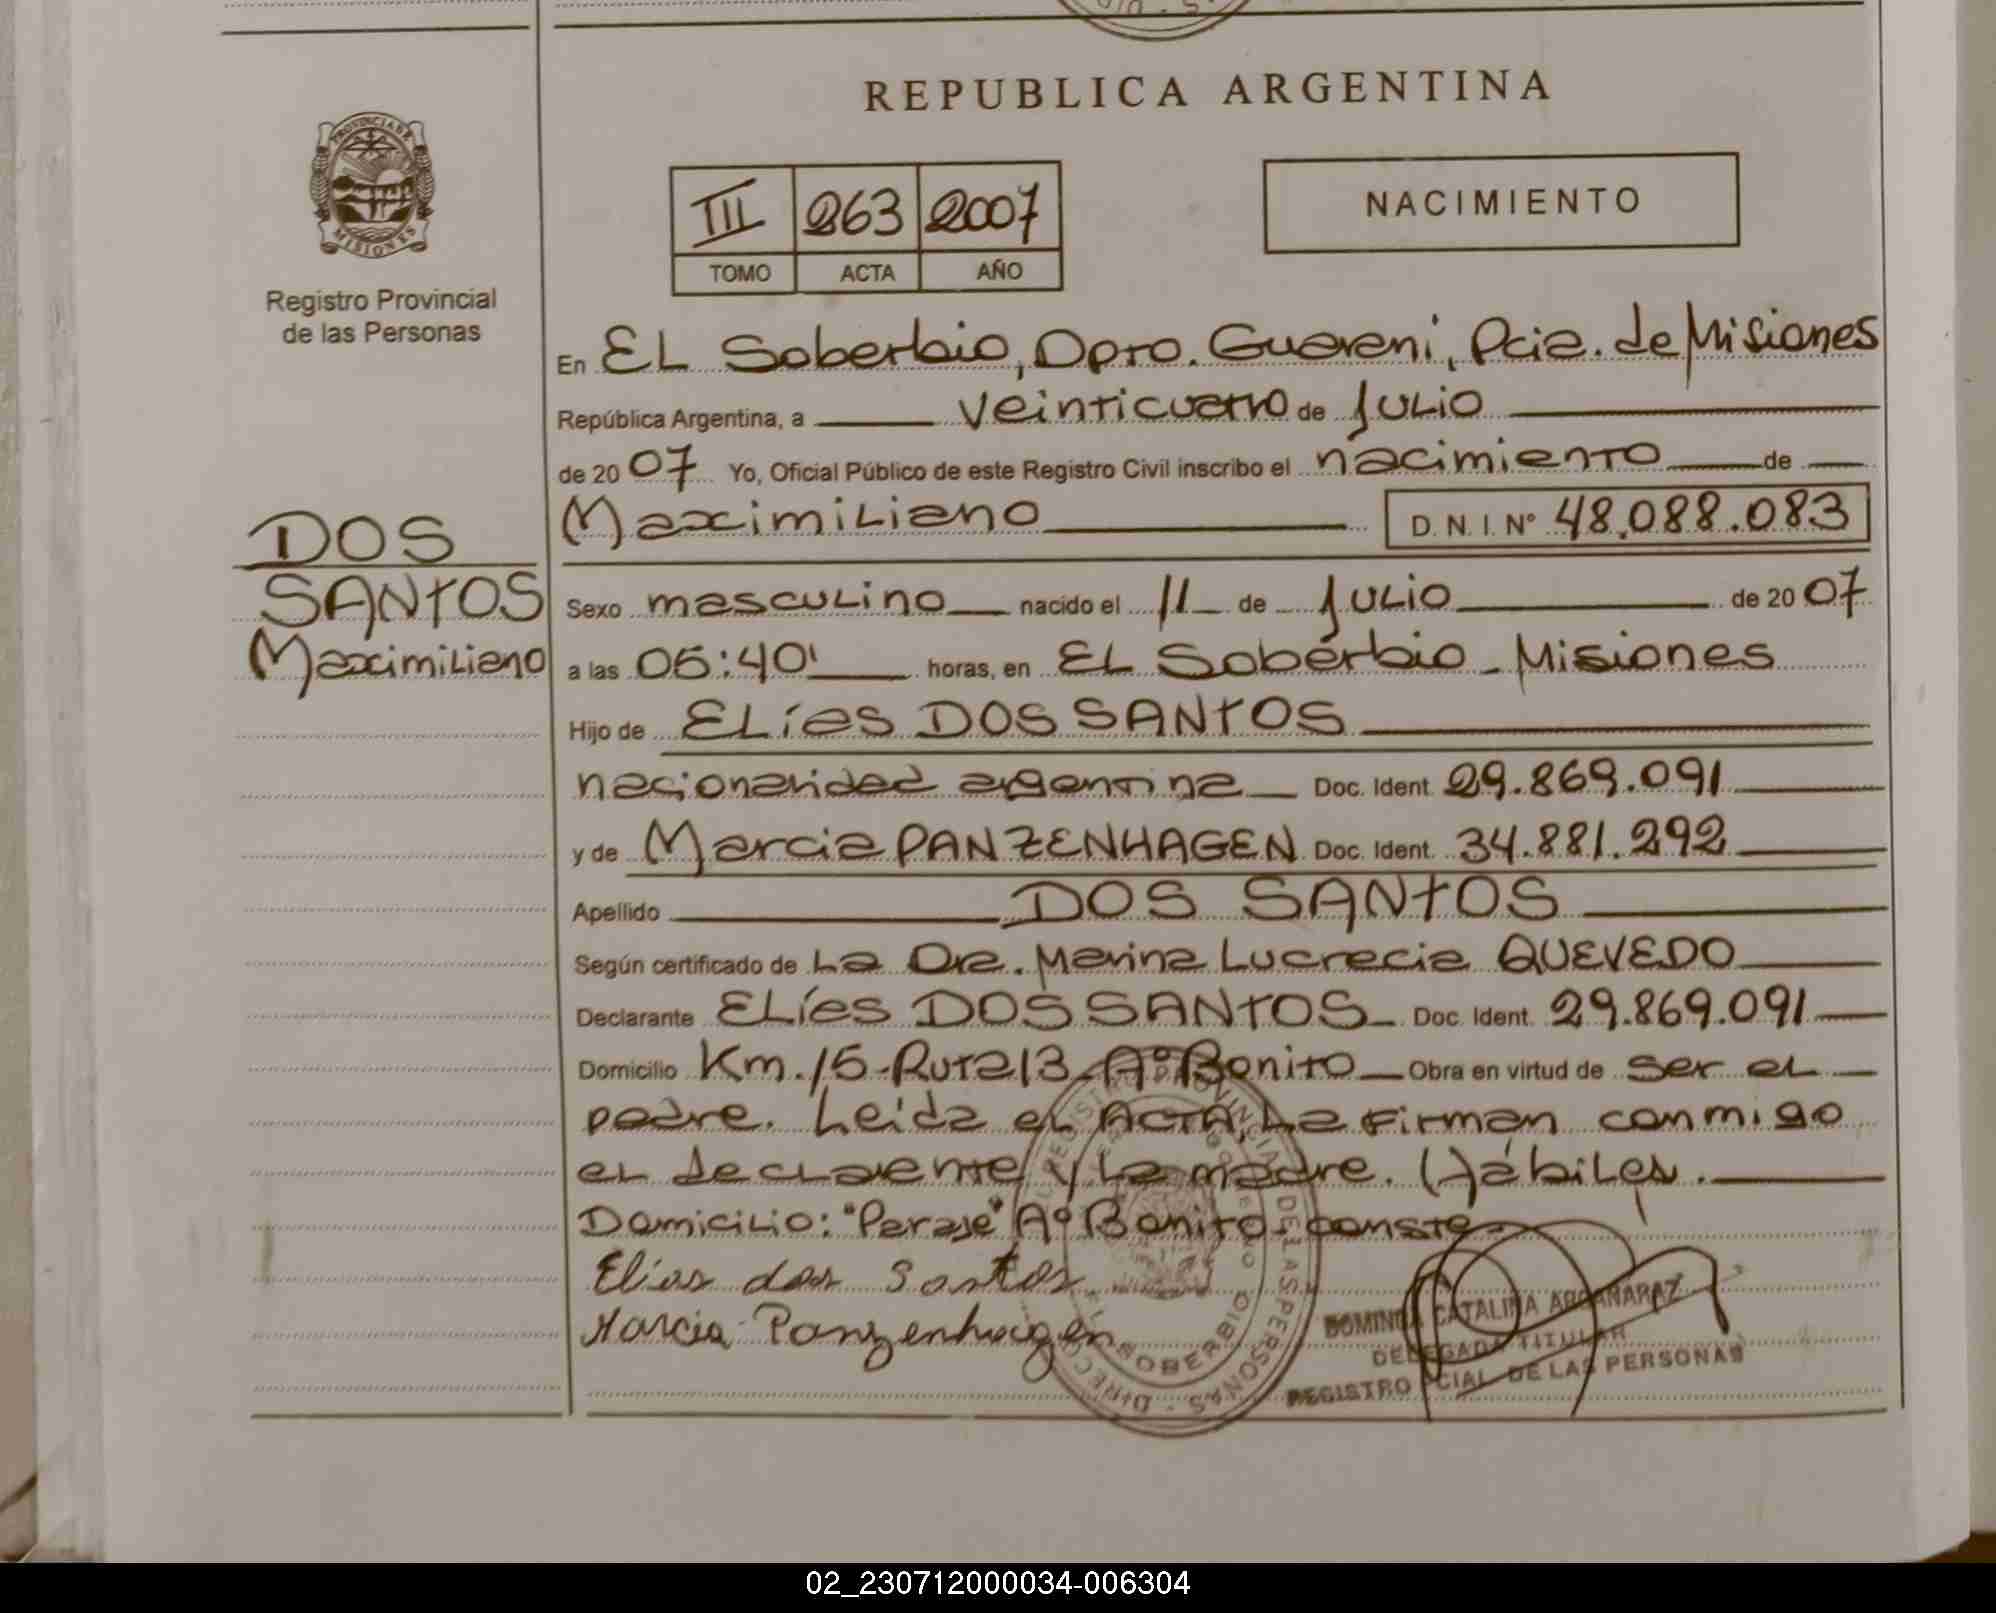 REPUBLICA ARGENTINA
PROVINCIA DE
MISIONES
Registro Provincial
de las Personas
III 263 2007
TOMO ACTA AÑO
NACIMIENTO
En EL Soberbio, Dpto. Guarani, Pcia. de Misiones
República Argentina, a veinticuatro de JULIO
de 2007 Yo, Oficial Público de este Registro Civil inscribo el nacimiento de
Maximiliano D. N. I. Nº 48.088.083
DOS
SANTOS
Maximiliano
Sexo masculino nacido el 11 de JULIO de 2007
a las 05:40' horas, en EL Soberbio - Misiones
Hijo de ELías DOS SANTOS
nacionalidad argentina Doc. Ident. 29.869.091
y de Marcia PANZENHAGEN Doc. Ident. 34.881.292
Apellido DOS SANTOS
Según certificado de La Dra. Marina Lucrecia QUEVEDO
Declarante ELías DOS SANTOS Doc. Ident. 29.869.091
Domicilio Km. 15-Ruta 13 Aº Bonito Obra en virtud de ser el
padre. Leida el ACTA, La Firman conmigo
el declarante y la madre. Hábiles.
Domicilio: "Paraje" Aº Bonito - conste
Elias dos Santos
Marcia Panzenhagen
EL SOBERBIO
DE LAS PERSONAS
DOMINGA CATALINA ARGAÑARAZ
DELEGADA TITULAR
REGISTRO CIAL DE LAS PERSONAS
02_230712000034-006304